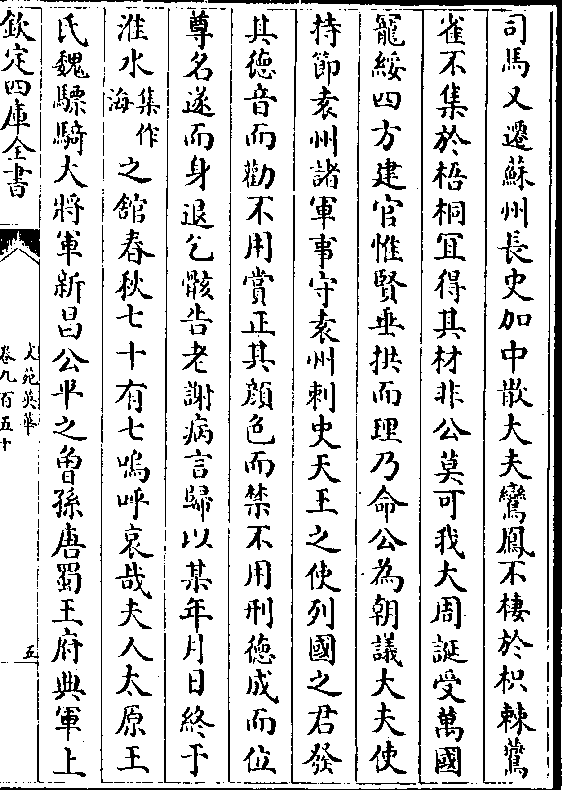 司馬又遷蘇州長史加中散大夫鸞鳳不棲於枳棘鷟
雀不集於梧桐冝得其材非公莫可我大周誕受萬國
寵綏四方建官惟賢垂拱而理乃命公為朝議大夫使
持節袁州諸軍事守袁州刺史天王之使列國之君發
其德音而勸不用賞正其顔色而禁不用刑德成而位
尊名遂而身退乞骸告老謝病言歸以某年月日終于
淮水集作海之舘春秋七十有七嗚呼哀哉夫人太原王
氏魏驃騎大將軍新昌公平之曾孫唐蜀王府典軍上
欽定四庫全書
文苑英華
卷九百五十
五